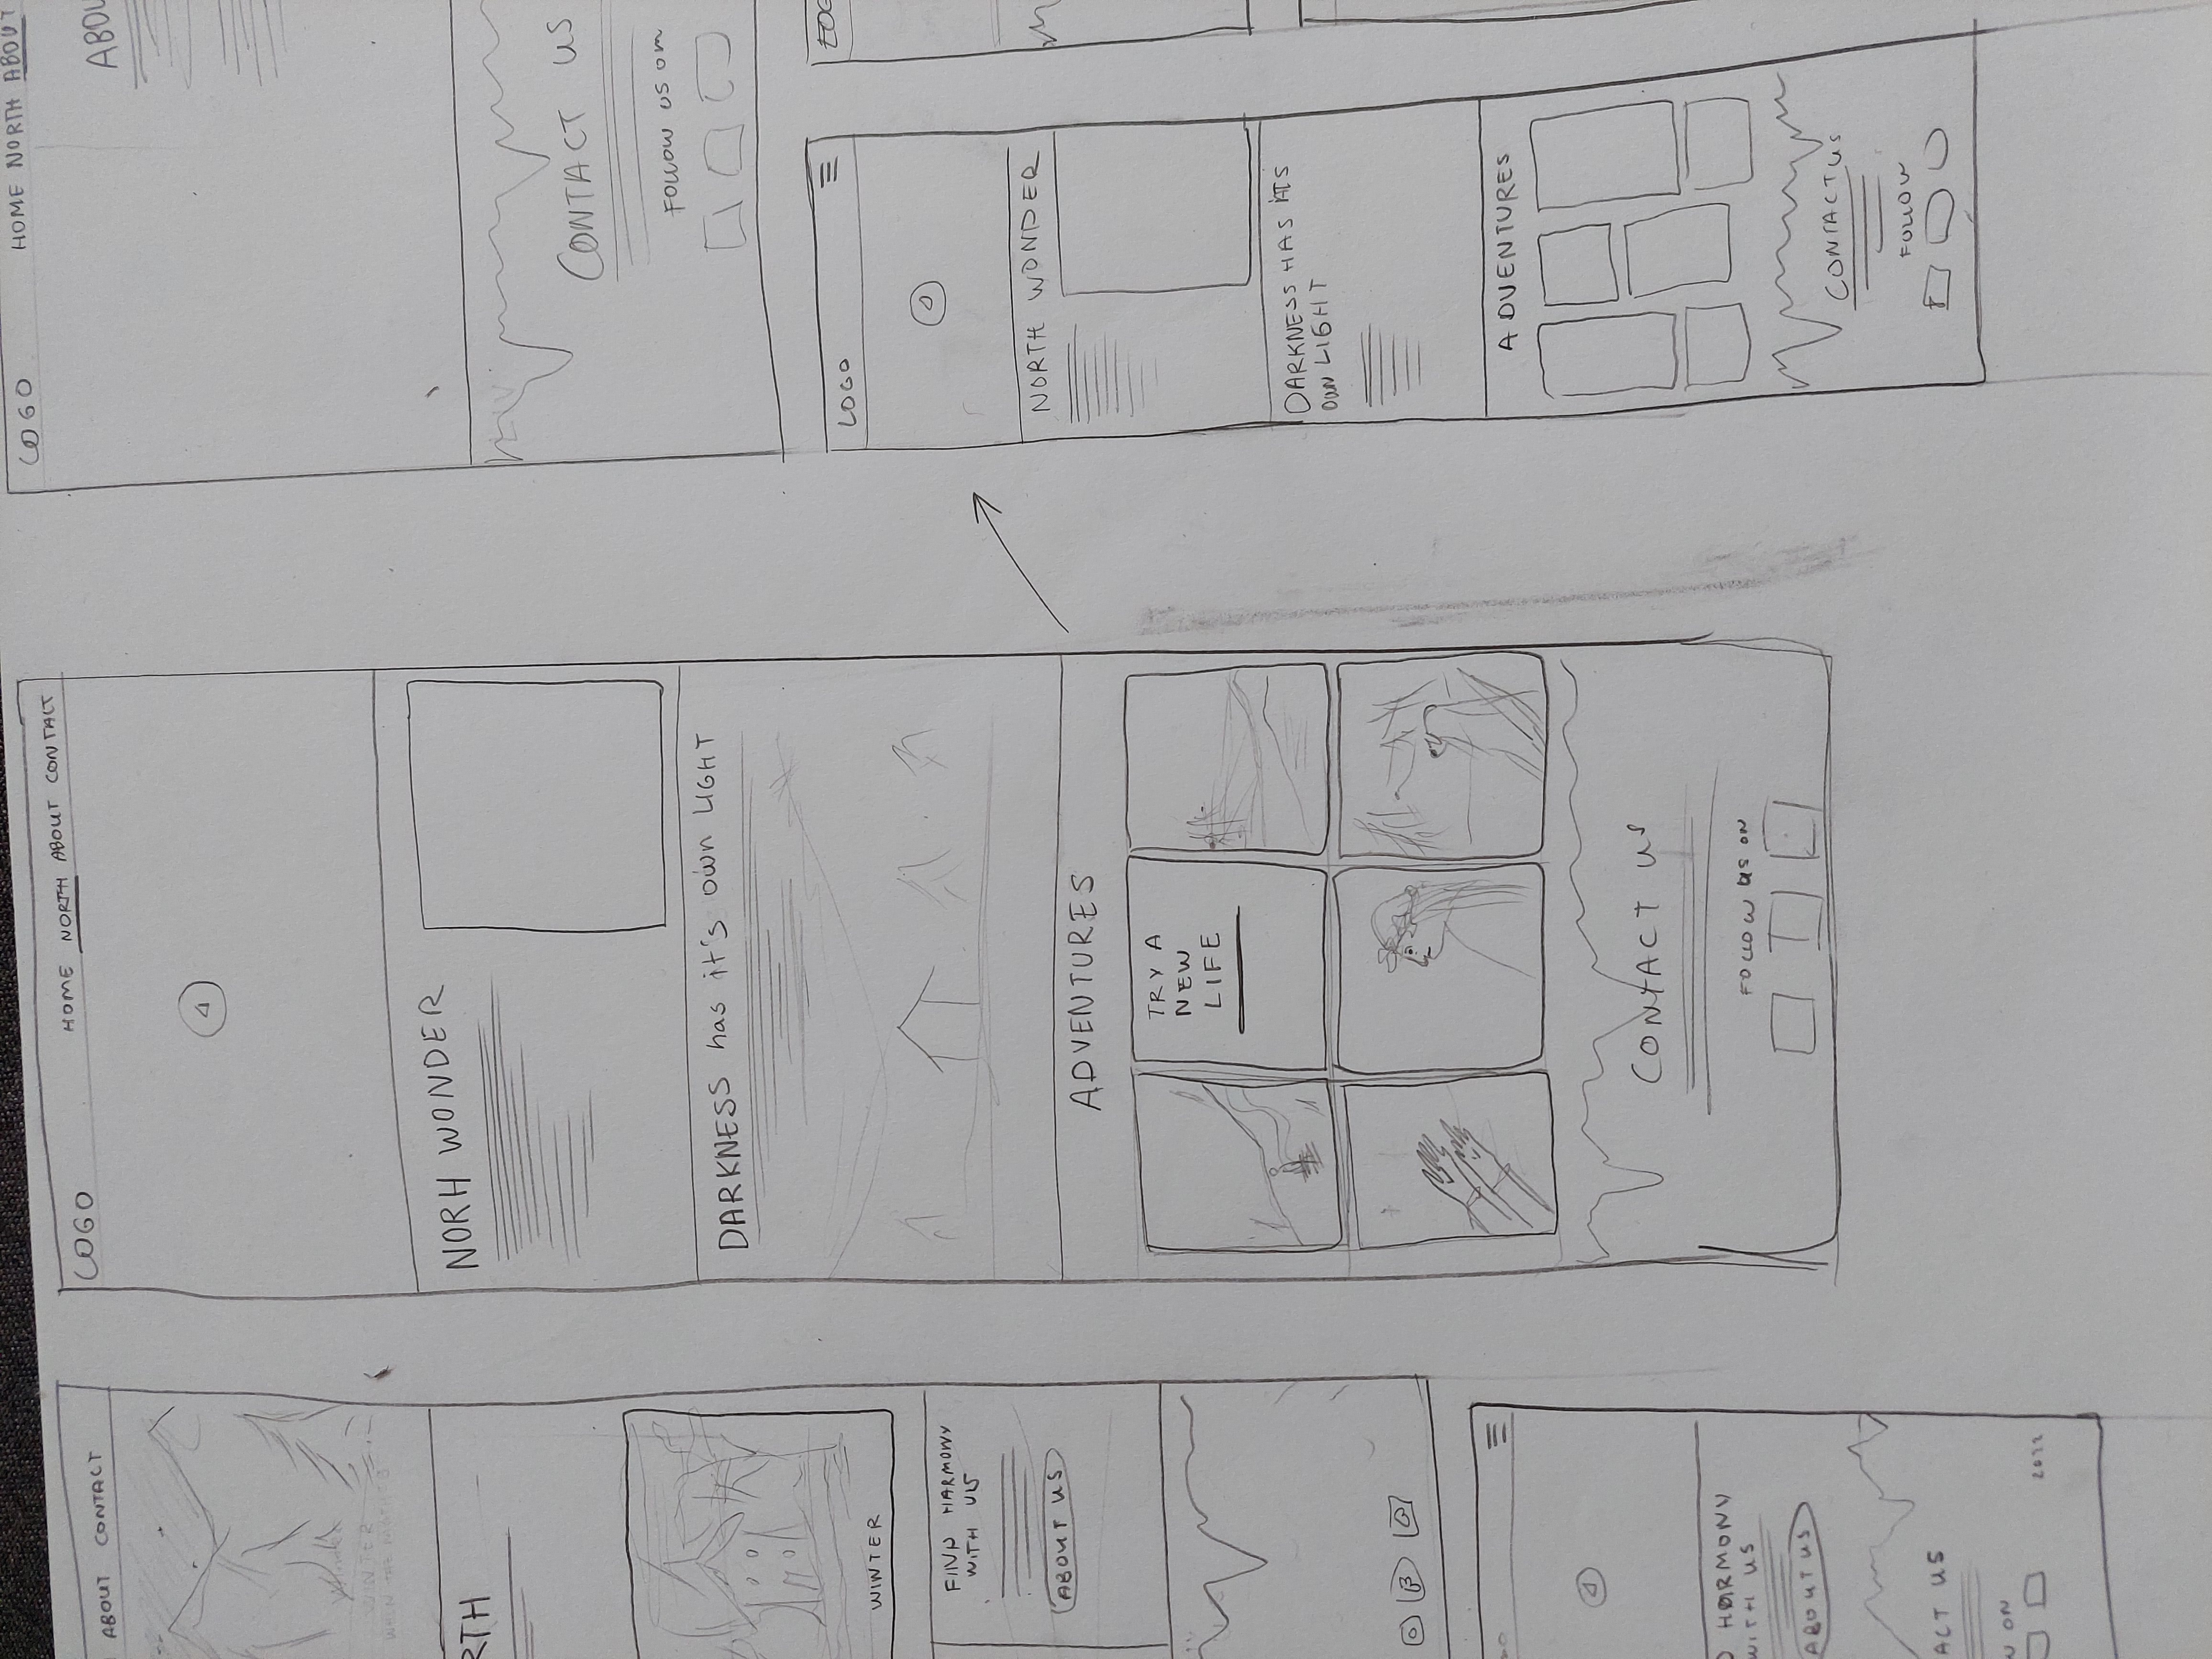 ABOUT CONTACT
WINTER
WHEN THE
RTH
WINTER
FIND HARMONY
WITH US
ABOUT US
HARMONY
WITH US
ABOUT US
ACT US
ON
2022
LOGO
HOME NORTH ABOUT CONTACT
NORH WONDER
DARKNESS has it's own LIGHT
ADVENTURES
TRY A
NEW
LIFE
CONTACT US
FOLLOW us ON
LOGO
HOME NORTH ABOUT
ABOU
CONTACT US
FOLLOW US on
LOGO
NORTH WONDER
DARKNESS HAS ITS
own LIGHT
ADVENTURES
CONTACT us
FOLLOW
LOG